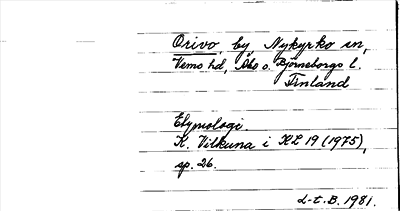 Orivo, by, Nykyrko sn,
Vemo hd, Åbo o. Björneborgs l.
Finland
Etymologi.
K. Vilkuna i KL 19 (1975),
sp. 26.
L-t. B. 1981.